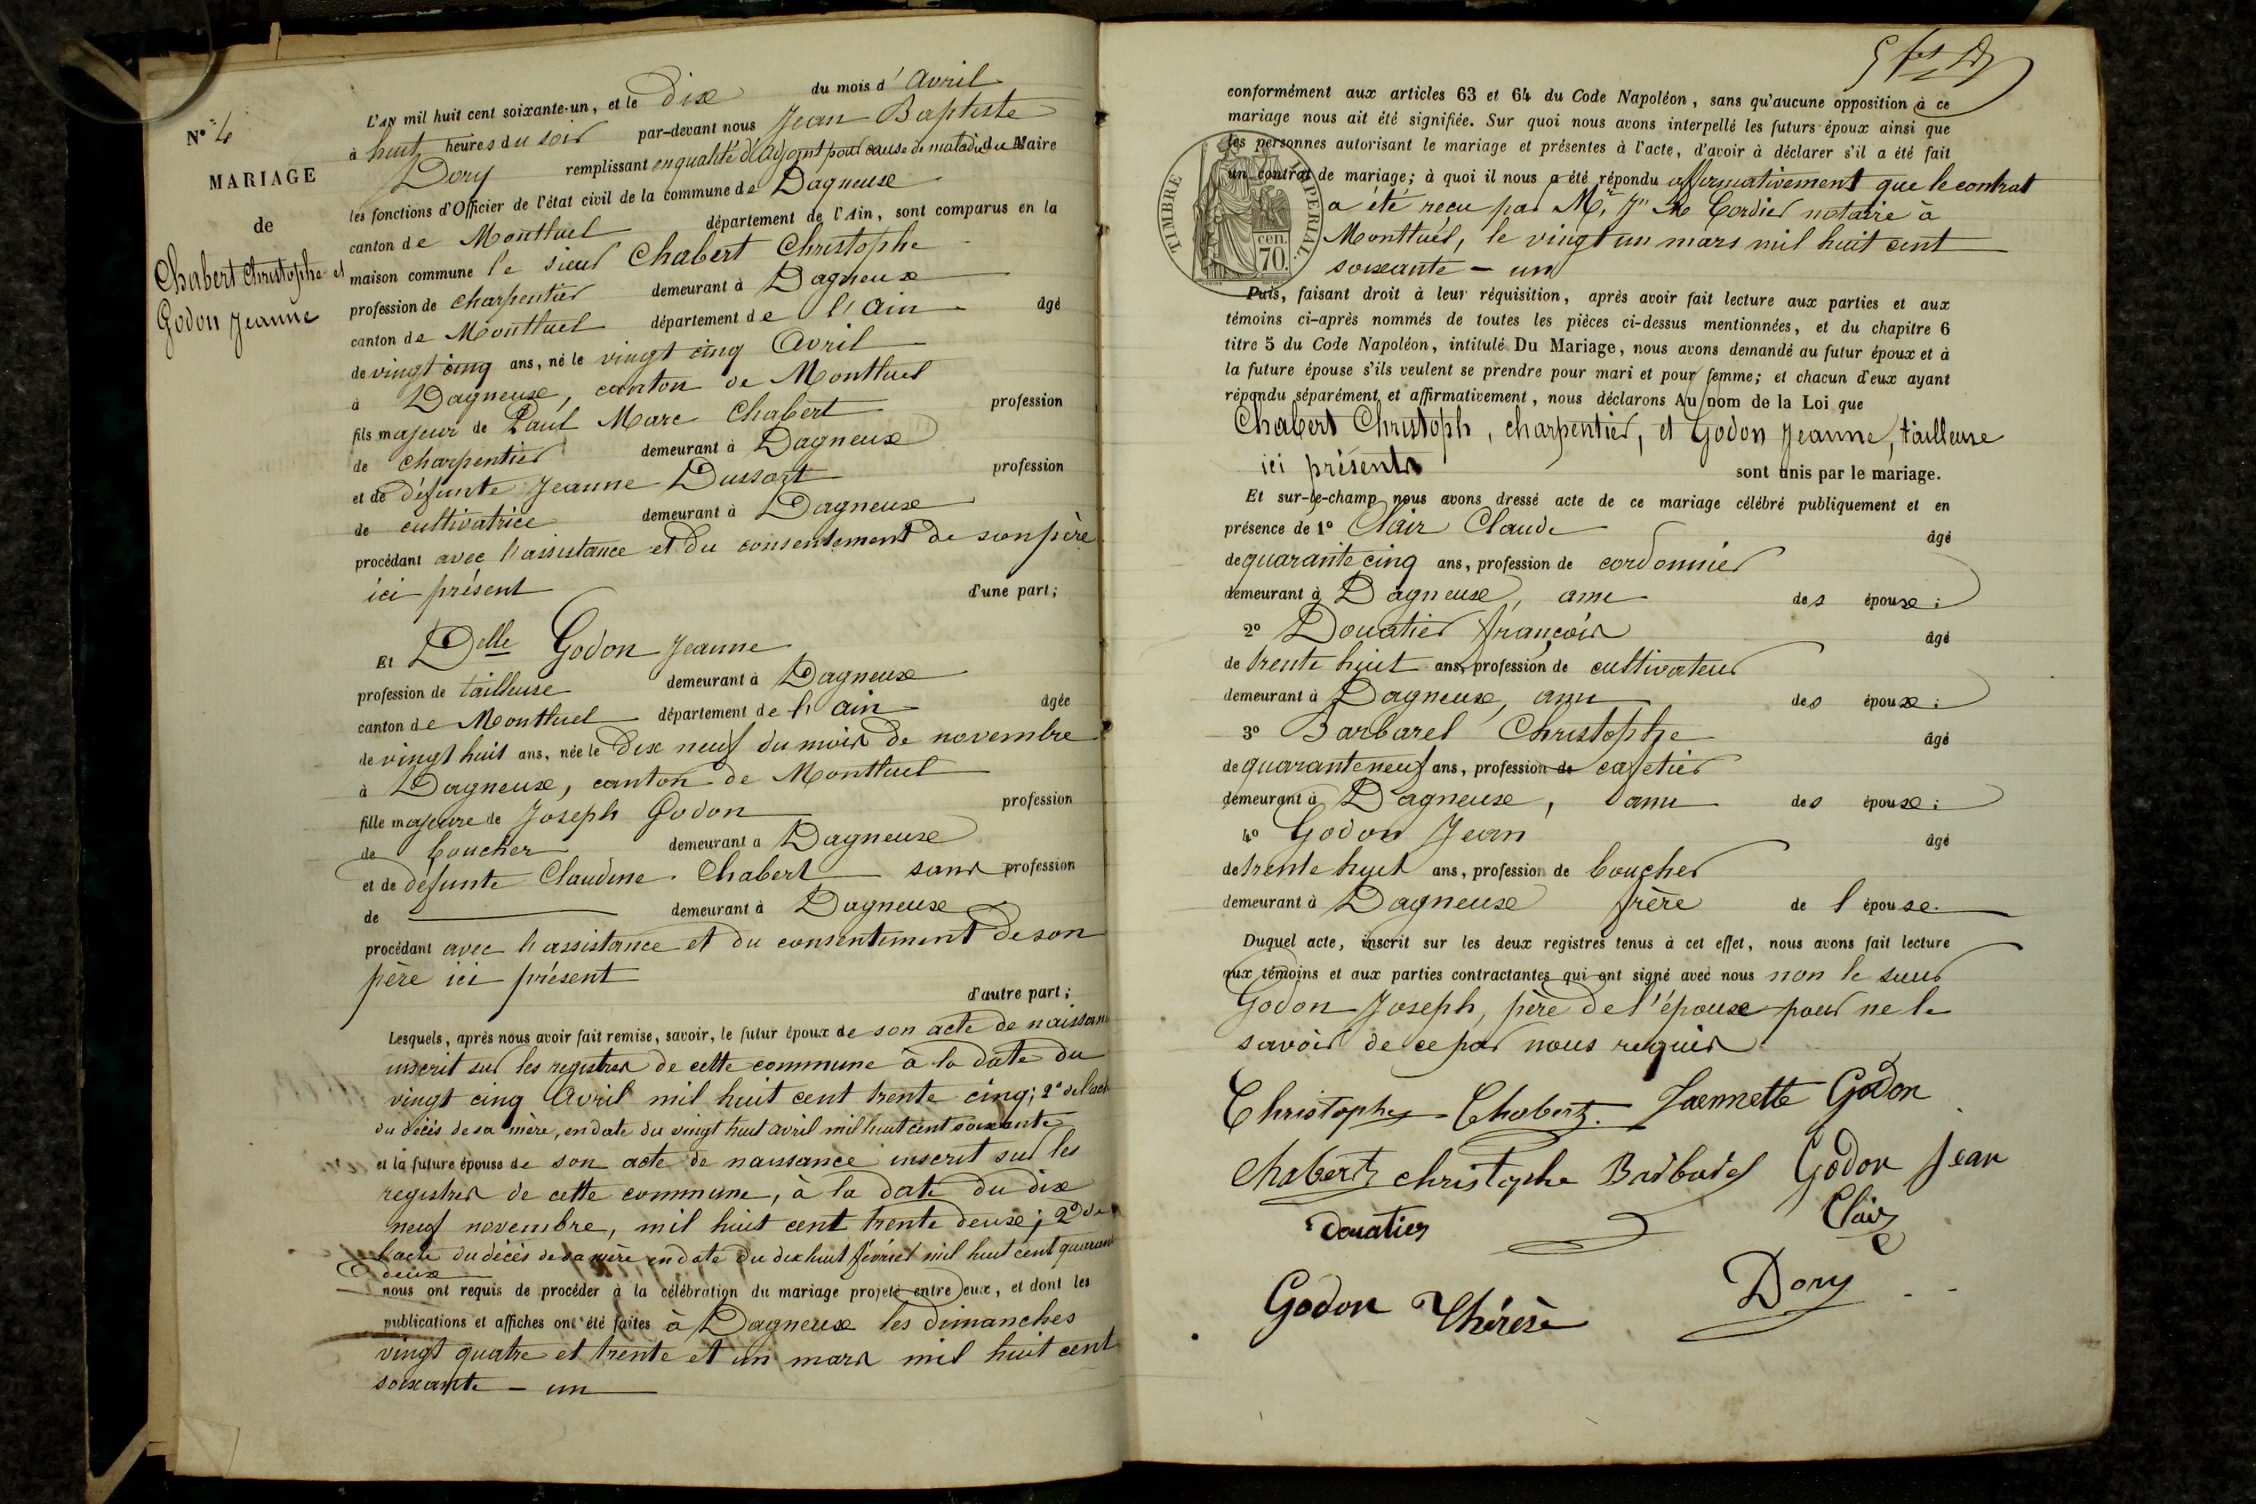 N° 4
MARIAGE
de
Chabert Christophe et
Godon Jeanne
L'an mil huit cent soixante-un, et le dix du mois d'avril
à huit heures du soir par-devant nous Jean Baptiste
Dory remplissant en qualité d'adjoint pour cause de maladie du Maire
les fonctions d'Officier de l'état civil de la commune de Dagneux
canton de Montluel département de l'Ain, sont comparus en la
maison commune le sieur Chabert Christophe
profession de charpentier demeurant à Dagneux
canton de Montluel département de l'Ain âgé
de vingt cinq ans, né le vingt cinq Avril
à Dagneux, canton de Montluel
fils majeur de Paul Marc Chabert profession
de charpentier demeurant à Dagneux
et de défunte Jeanne Dussort profession
de cultivatrice demeurant à Dagneux
procédant avec l'assistance et du consentement de son père
ici présent d'une part;
Et Delle Godon Jeanne
profession de tailleuse demeurant à Dagneux
canton de Montluel département de l'Ain âgée
de vingt huit ans, née le dix neuf du mois de novembre
à Dagneux, canton de Montluel
fille majeure de Joseph Godon profession
de boucher demeurant à Dagneux
et de défunte Claudine Chabert sans profession
de demeurant à Dagneux
procédant avec l'assistance et du consentement de son
père ici présent
d'autre part;
Lesquels, après nous avoir fait remise, savoir, le futur époux de son acte de naissance
inscrit sur les registres de cette commune à la date du
vingt cinq Avril mil huit cent trente cinq; 2° de l'acte
du décès de sa mère, en date du vingt huit avril mil huit cent soixante
et la future épouse de son acte de naissance inscrit sur les
registres de cette commune, à la date du dix
neuf novembre, mil huit cent trente deux; 2° de
l'acte du décès de sa mère en date du dix huit février mil huit cent quarante
deux
nous ont requis de procéder à la célébration du mariage projeté entre eux, et dont les
publications et affiches ont été faites à Dagneux les dimanches
vingt quatre et trente et un mars mil huit cent
soixante - un
conformément aux articles 63 et 64 du Code Napoléon, sans qu'aucune opposition à ce
mariage nous ait été signifiée. Sur quoi nous avons interpellé les futurs époux ainsi que
les personnes autorisant le mariage et présentes à l'acte, d'avoir à déclarer s'il a été fait
un contrat de mariage; à quoi il nous a été répondu affirmativement que le contrat
a été reçu par Me Jn Me Cordier notaire à
Montluel, le vingt un mars mil huit cent
soixante - un
TIMBRE IMPERIAL.
70 cen.
Puis, faisant droit à leur réquisition, après avoir fait lecture aux parties et aux
témoins ci-après nommés de toutes les pièces ci-dessus mentionnées, et du chapitre 6
titre 5 du Code Napoléon, intitulé Du Mariage, nous avons demandé au futur époux et à
la future épouse s'ils veulent se prendre pour mari et pour femme; et chacun d'eux ayant
répondu séparément et affirmativement, nous déclarons Au nom de la Loi que
Chabert Christoph, charpentier, et Godon Jeanne, tailleuse
ici présents sont unis par le mariage.
Et sur-le-champ nous avons dressé acte de ce mariage célébré publiquement et en
présence de 1° Clair Claude âgé
de quarante cinq ans, profession de cordonnier
demeurant à Dagneux, ami des époux;
2° Douatier françois âgé
de trente huit ans, profession de cultivateur
demeurant à Dagneux, ami des époux;
3° Barbarel Christophe âgé
de quarante neuf ans, profession de cafetier
demeurant à Dagneux, ami des époux;
4° Godon Jean âgé
de trente huit ans, profession de boucher
demeurant à Dagneux frère de l'épouse.
Duquel acte, inscrit sur les deux registres tenus à cet effet, nous avons fait lecture
aux témoins et aux parties contractantes qui ont signé avec nous non le sieur
Godon Joseph, père de l'épouse pour ne le
savoir de ce par nous requis
Christophe Chabert. Jaennette Godon
Chabert christophe Barbarel Godon Jean
Douatier Clair
Godon Thérèse Dory